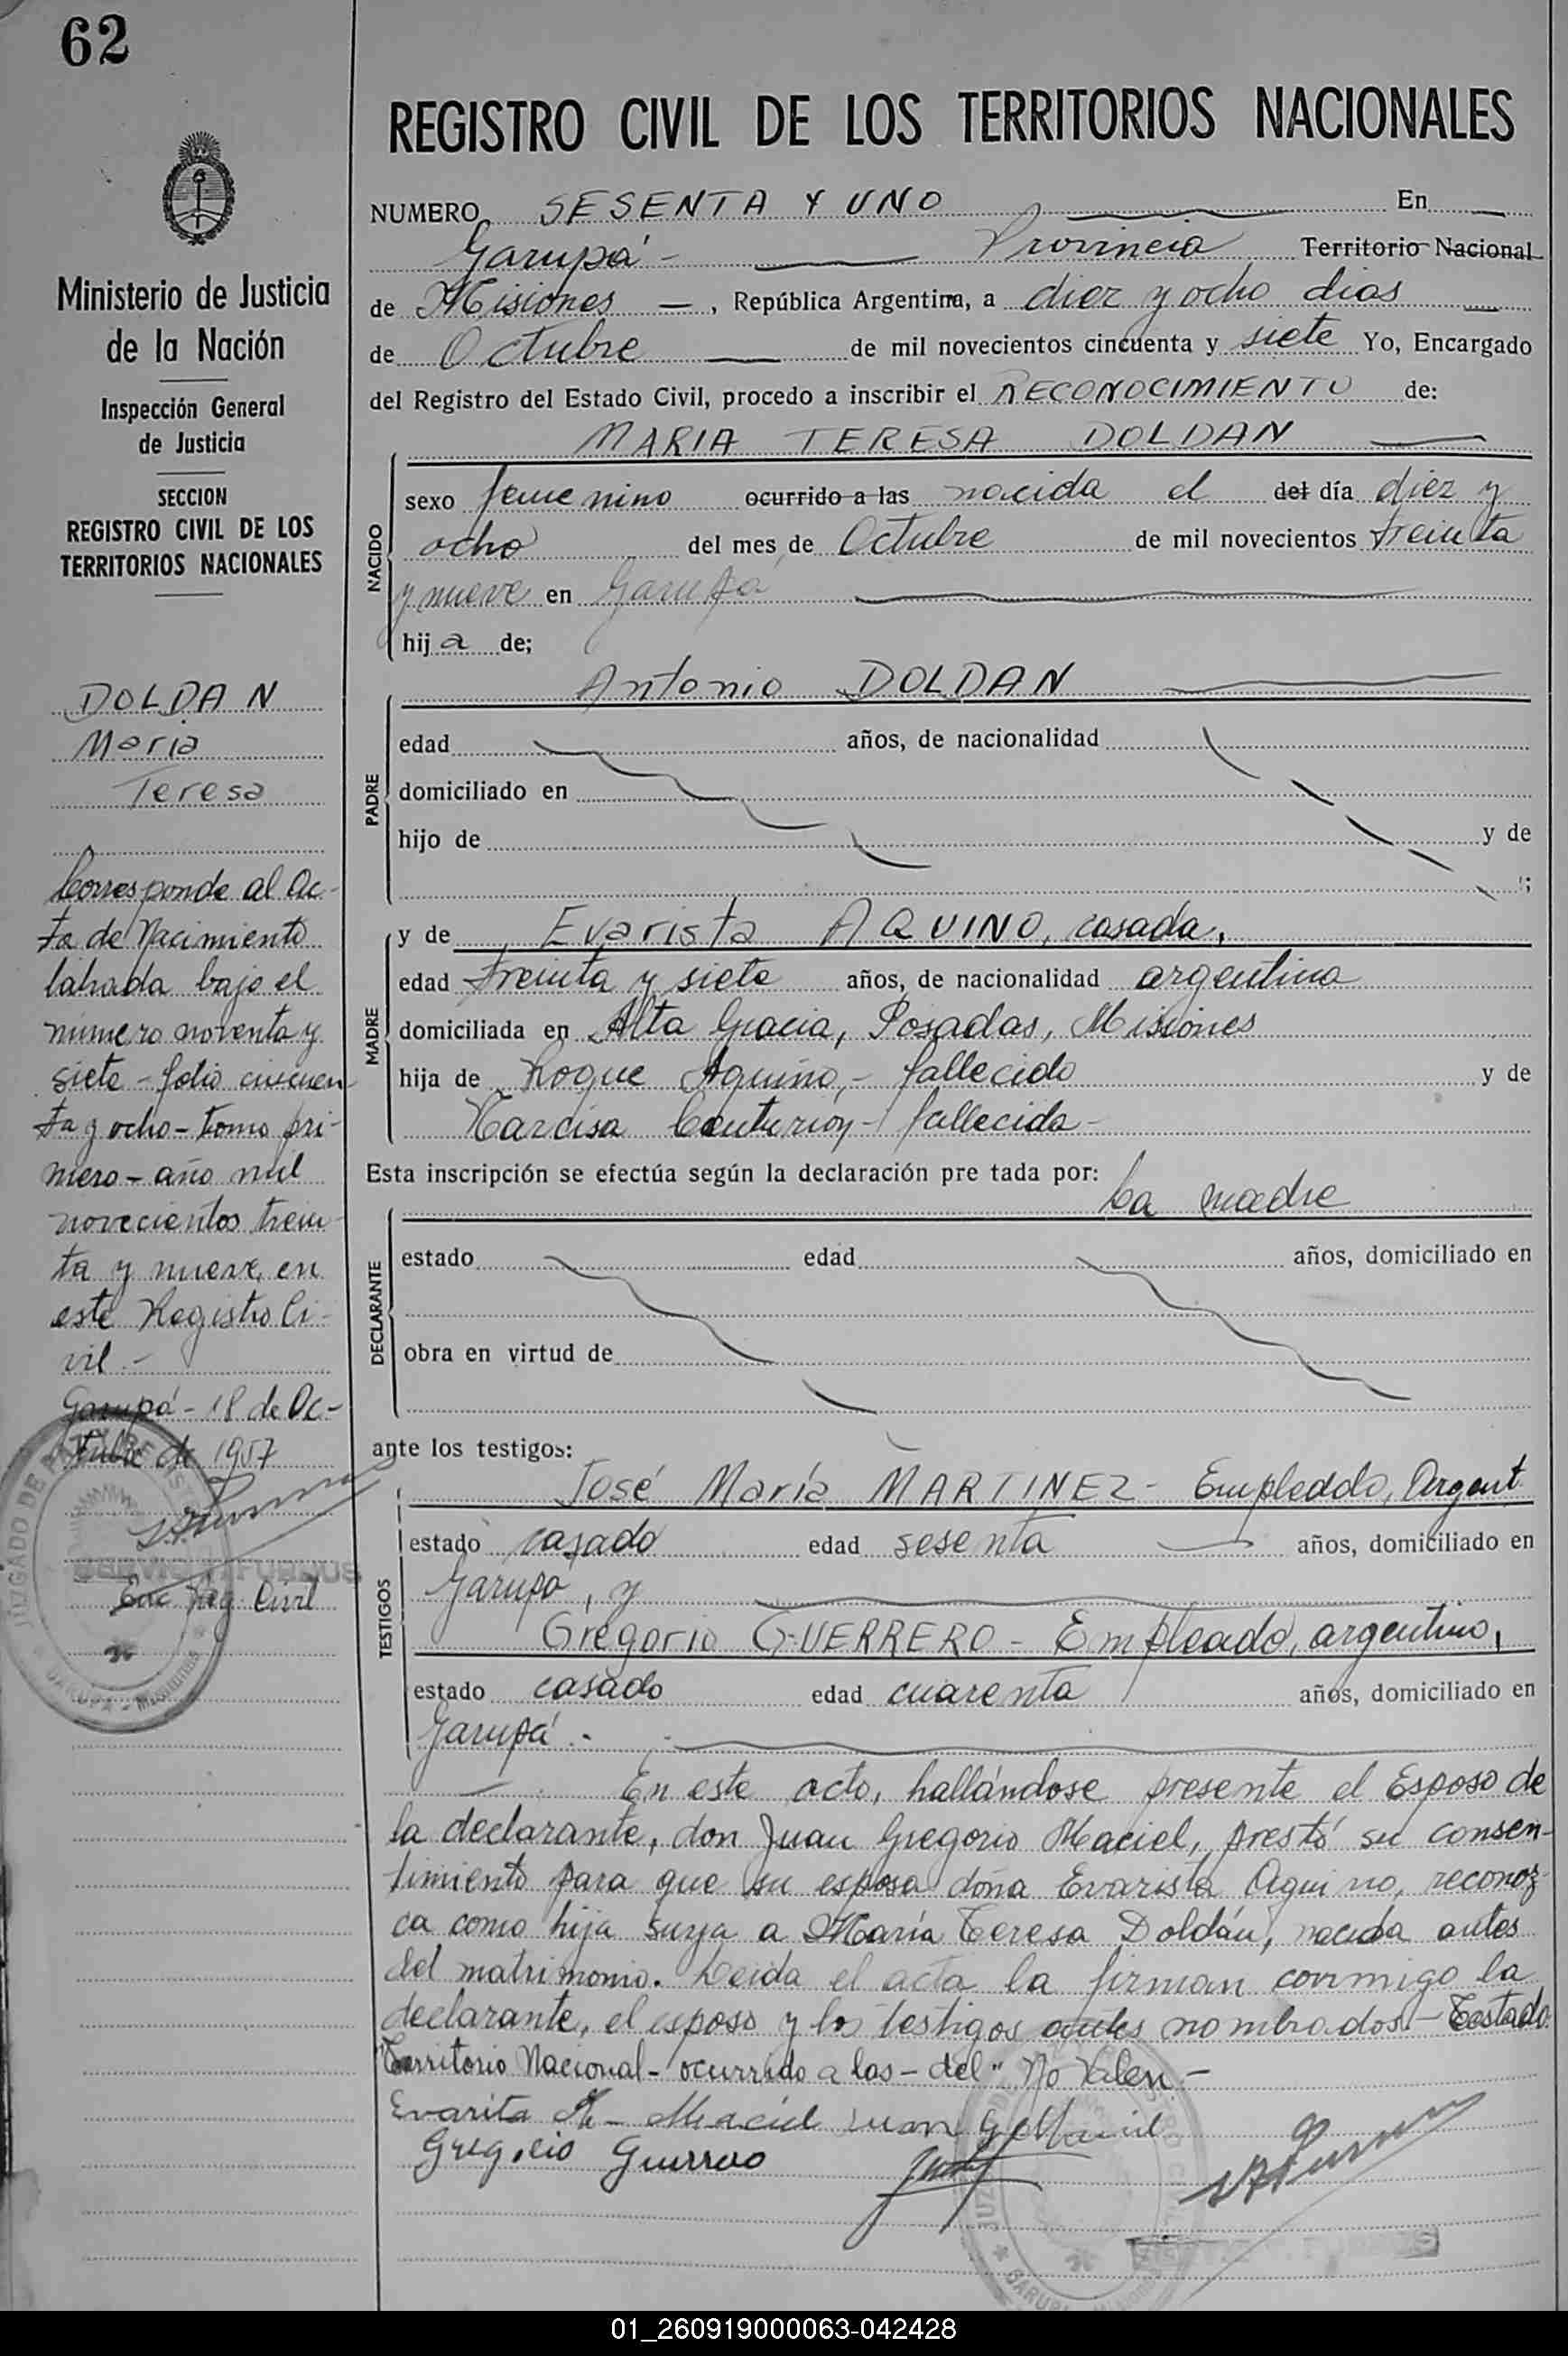 62
REGISTRO CIVIL DE LOS TERRITORIOS NACIONALES
Ministerio de Justicia
de la Nación
Inspección General
de Justicia
SECCION
REGISTRO CIVIL DE LOS
TERRITORIOS NACIONALES
DOLDAN
Maria
Teresa
Corresponde al Ac-
ta de Nacimiento
labrada bajo el
número noventa y
siete - folio cincuen-
ta y ocho - tomo pri-
mero - año mil
novecientos trein-
ta y nueve, en
este Registro Ci-
vil.-
Garupá - 18 de Oc-
tubre de 1957
Enc Reg. Civil
NUMERO SESENTA Y UNO En
Garupá - Provincia Territorio Nacional
de Misiones -, República Argentina, a diez y ocho dias
de Octubre de mil novecientos cincuenta y siete Yo, Encargado
del Registro del Estado Civil, procedo a inscribir el RECONOCIMIENTO de:
MARIA TERESA DOLDAN
NACIDO
sexo femenino ocurrido a las nacida el del día diez y
ocho del mes de Octubre de mil novecientos treinta
y nueve en Garupá
hija de;
Antonio DOLDAN
PADRE
edad años, de nacionalidad
domiciliado en
hijo de y de
;
MADRE
y de Evarista AQUINO, casada,
edad treinta y siete años, de nacionalidad argentina
domiciliada en Alta Gracia, Posadas, Misiones
hija de Roque Aquino,- fallecido y de
Narcisa Centurion - fallecida -
Esta inscripción se efectúa según la declaración pre tada por:
La madre
DECLARANTE
estado edad años, domiciliado en
obra en virtud de
ante los testigos:
TESTIGOS
José María MARTINEZ - Empleado, Argent.
estado casado edad sesenta años, domiciliado en
Garupá, y
Gregorio GUERRERO - Empleado, argentino,
estado casado edad cuarenta años, domiciliado en
Garupá.-
En este acto, hallándose presente el Esposo de
la declarante, don Juan Gregorio Maciel, prestó su consen-
timiento para que su esposa doña Evarista Aquino, reconoz-
ca como hija suya a María Teresa Doldán, nacida antes
del matrimonio. Leida el acta la firman conmigo la
declarante, el esposo y los testigos antes nombrados.- Testado:
"Territorio Nacional - ocurrido a las - del" No Valen.-
Evarita A- Maciel Juan G Maciel
Gregorio Guerrero
01_260919000063-042428